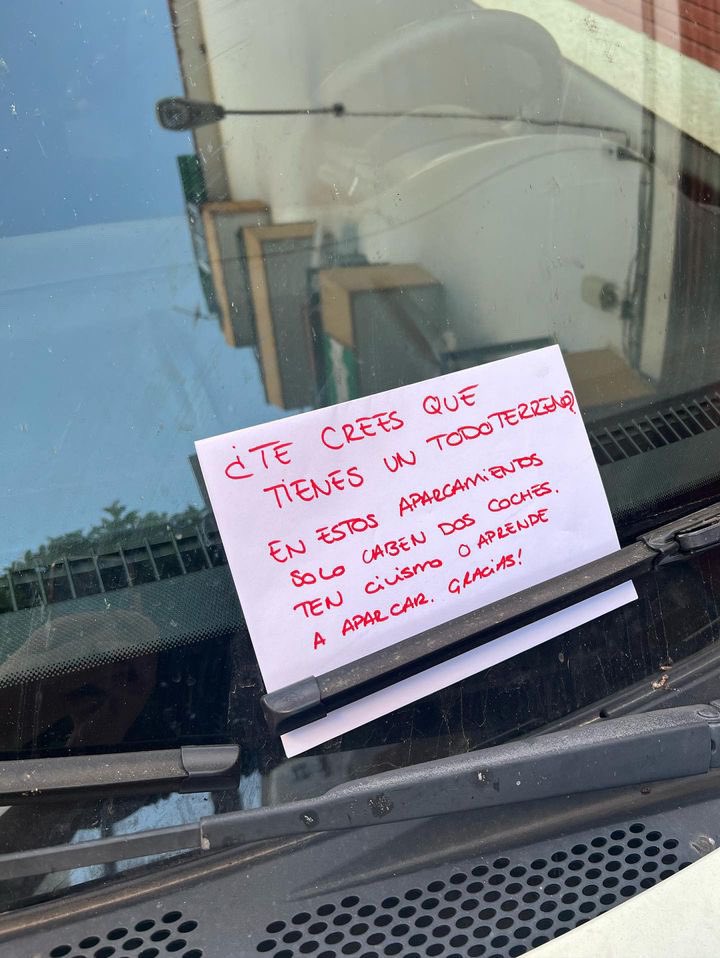 ¿TE CREES QUE
TIENES UN TODOTERRENO?
EN ESTOS APARCAMIENTOS
SOLO CABEN DOS COCHES.
TEN CIVISMO O APRENDE
A APARCAR. GRACIAS!